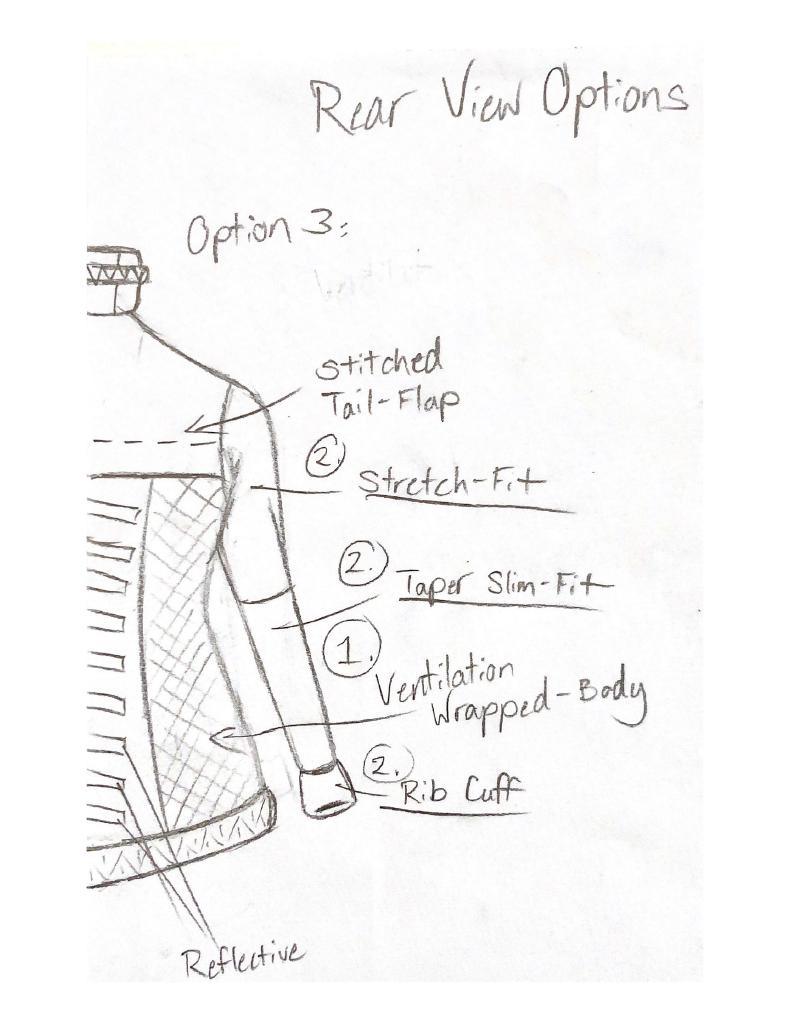 Rear View Options
Option 3:
Stitched
Tail-Flap
2.
Stretch-Fit
2.
Taper Slim-Fit
1.
Ventilation
Wrapped-Body
2.
Rib Cuff
Reflective